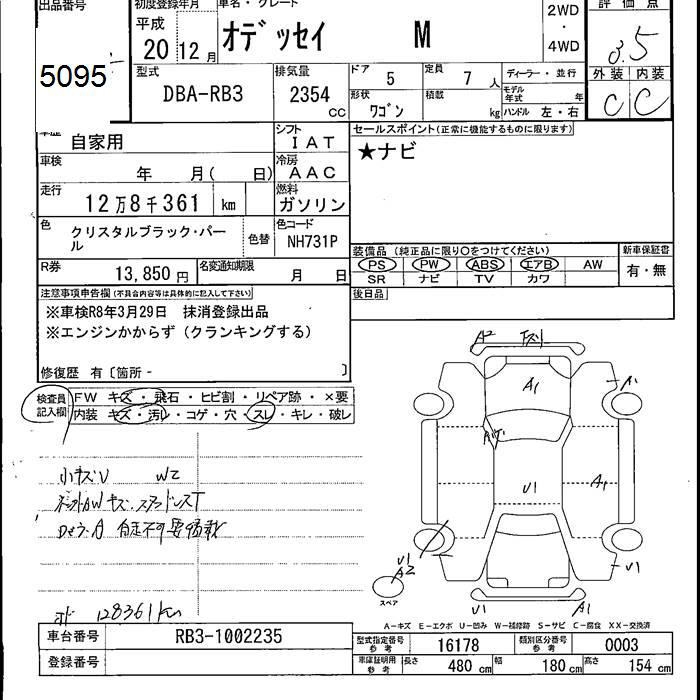 出品番号
初度登録年月
車名・グレード
評価点
平成
20 12 月
オデッセイ M
2WD
・
4WD
3.5
5095
型式
DBA-RB3
排気量
2354 CC
ドア 5
定員 7 人
ディーラー・並行
外装 内装
形状 ワゴン
積載 kg
モデル年式 年
ハンドル 左・右
C C
自家用
シフト IAT
セールスポイント(正常に機能するものに限ります)
車検 年 月( 日)
冷房 AAC
★ナビ
走行 12万8千361 km
燃料 ガソリン
色 クリスタルブラック・パール
色替
色コード NH731P
装備品 (純正品に限り○をつけてください)
新車保証書
PS PW ABS エアB AW
有・無
SR ナビ TV カワ
R券 13,850 円
名変通知期限 月 日
後日品
注意事項申告欄(不具合内容等は具体的に記入して下さい)
※車検R8年3月29日 抹消登録出品
※エンジンかからず(クランキングする)
修復歴 有〔箇所 - 〕
検査員記入欄
FW キズ・飛石・ヒビ割・リペア跡・×要
内装 キズ・汚レ・コゲ・穴・スレ・キレ・破レ
A2
A1
A1
A1
U1
小キズU W2
自走不可 要積載
128361km
U1
A2
スペア
U1
U1
A1
A-キズ E-エクボ U-凹み W-補修跡 S-サビ C-腐食 XX-交換済
車台番号 RB3-1002235
型式指定番号 参考 16178
類別区分番号 参考 0003
登録番号
車庫証明用 参考 長さ 480 cm 幅 180 cm 高さ 154 cm